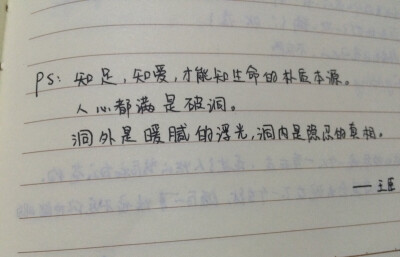 PS: 知足,知爱,才能知生命的朴质本源。
人心都满是破洞。
洞外是暖腻的浮光,洞内是隐忍的真相。